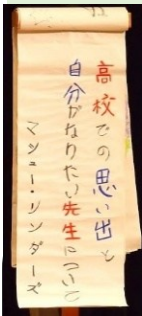 高校での思い出と
自分がなりたい先生について
マシュー・リンダーズ